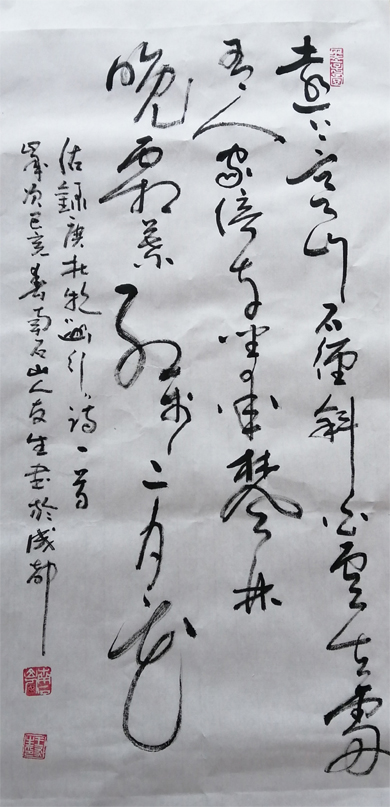 遠上寒山石徑斜白雲生處
有人家停車坐愛楓林
晚霜葉紅於二月花
錄唐杜牧"山行"詩一首
歲次己亥春南石山人友生書於成都